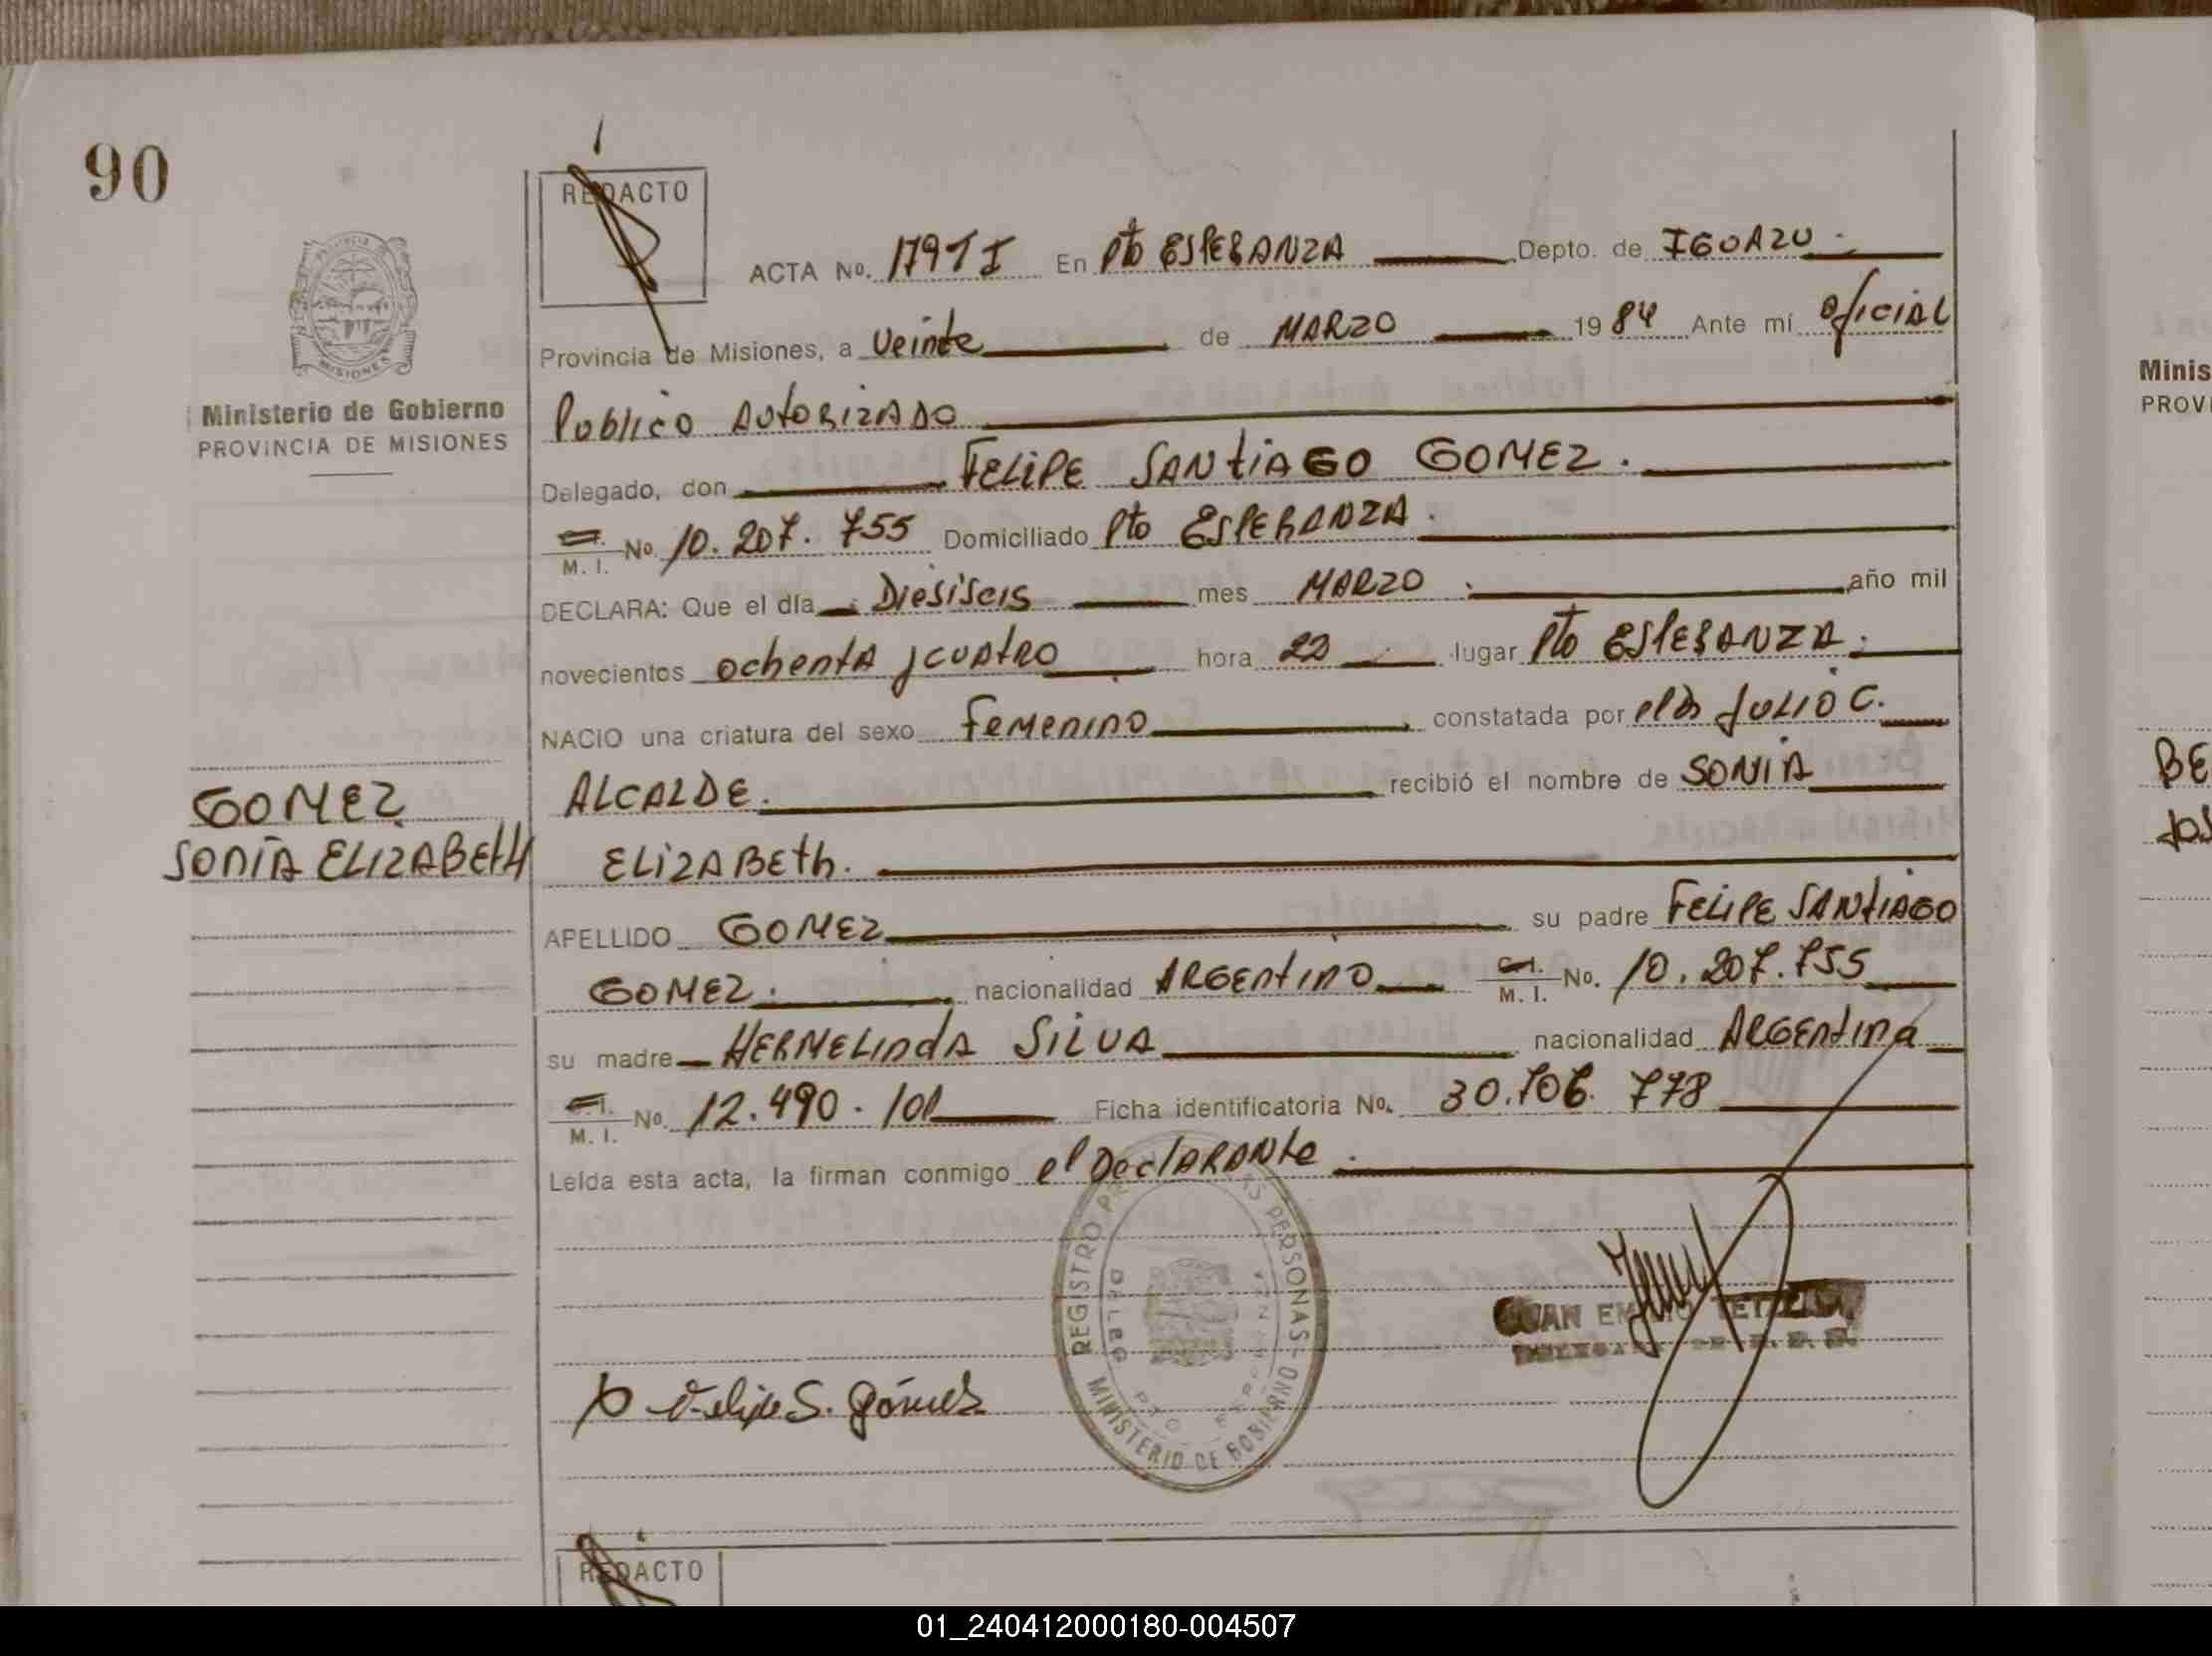 90
REDACTO
ACTA No. 179 T I En Pto ESPERANZA Depto. de IGUAZU
Provincia de Misiones, a Veinte de MARZO 1984 Ante mí Oficial
Publico AUTORIZADO
Ministerio de Gobierno
PROVINCIA DE MISIONES
Delegado, don FELIPE SANTIAGO GOMEZ.
C.I. M. I. No. 10.207.755 Domiciliado Pto ESPERANZA.
DECLARA: Que el día Diesiseis mes MARZO año mil
novecientos ochenta y cuatro hora 22 lugar Pto ESPERANZA.
NACIO una criatura del sexo Femenino constatada por el Dr JULIO C.
ALCALDE. recibió el nombre de SONIA
ELIZABEth.
GOMEZ
SONIA ELIZABEtH
APELLIDO GOMEZ su padre FELIPE SANTIAGO
GOMEZ. nacionalidad ARGENTINO C.I. M. I. No. 10.207.755
su madre HERMELINDA SILVA nacionalidad ARGENTINA
C.I. M. I. No. 12.490.101 Ficha identificatoria No. 30.706.778
Leída esta acta, la firman conmigo el DeclARANte.
REGISTRO PERSONAS - MINISTERIO DE GOBIERNO
JUAN EMILIO
Felipe S. Gómez
REDACTO
Minis
PROVI
BE
JOS
01_240412000180-004507